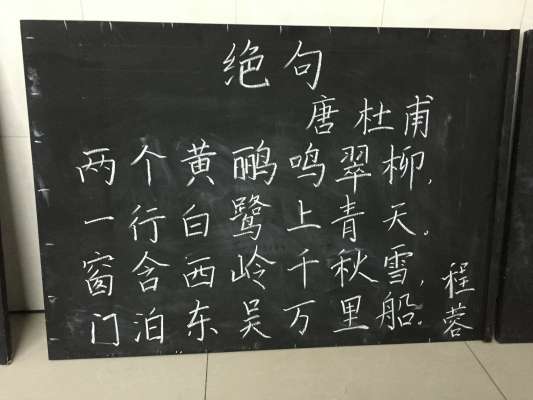 绝句
唐 杜甫
两个黄鹂鸣翠柳,
一行白鹭上青天。
窗含西岭千秋雪,
门泊东吴万里船。
程蓉